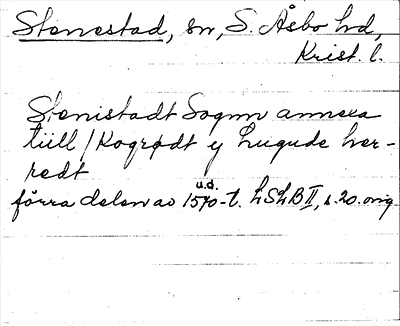 Stenestad, sn, S. Åsbo hd,
Krist. l.
Stenistadt Sognn annexa
tiill / Kogrødt y Lugude her-
redt
förra delen av 1570-t. u.d. LSLB II, s. 20. orig